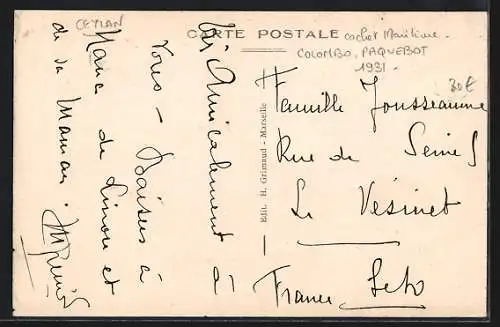 CEYLAN
CARTE POSTALE
cachet Maritime.
COLOMBO, PAQUEBOT
1931.
30€
Bi Amicalement à
Vous - Baisers à
Nanie de Linou et
de sa Maman.
Edit. H. Grimaud - Marseille
Famille Jousseaume
Rue de Seine 5
Le Vésinet
France S et O